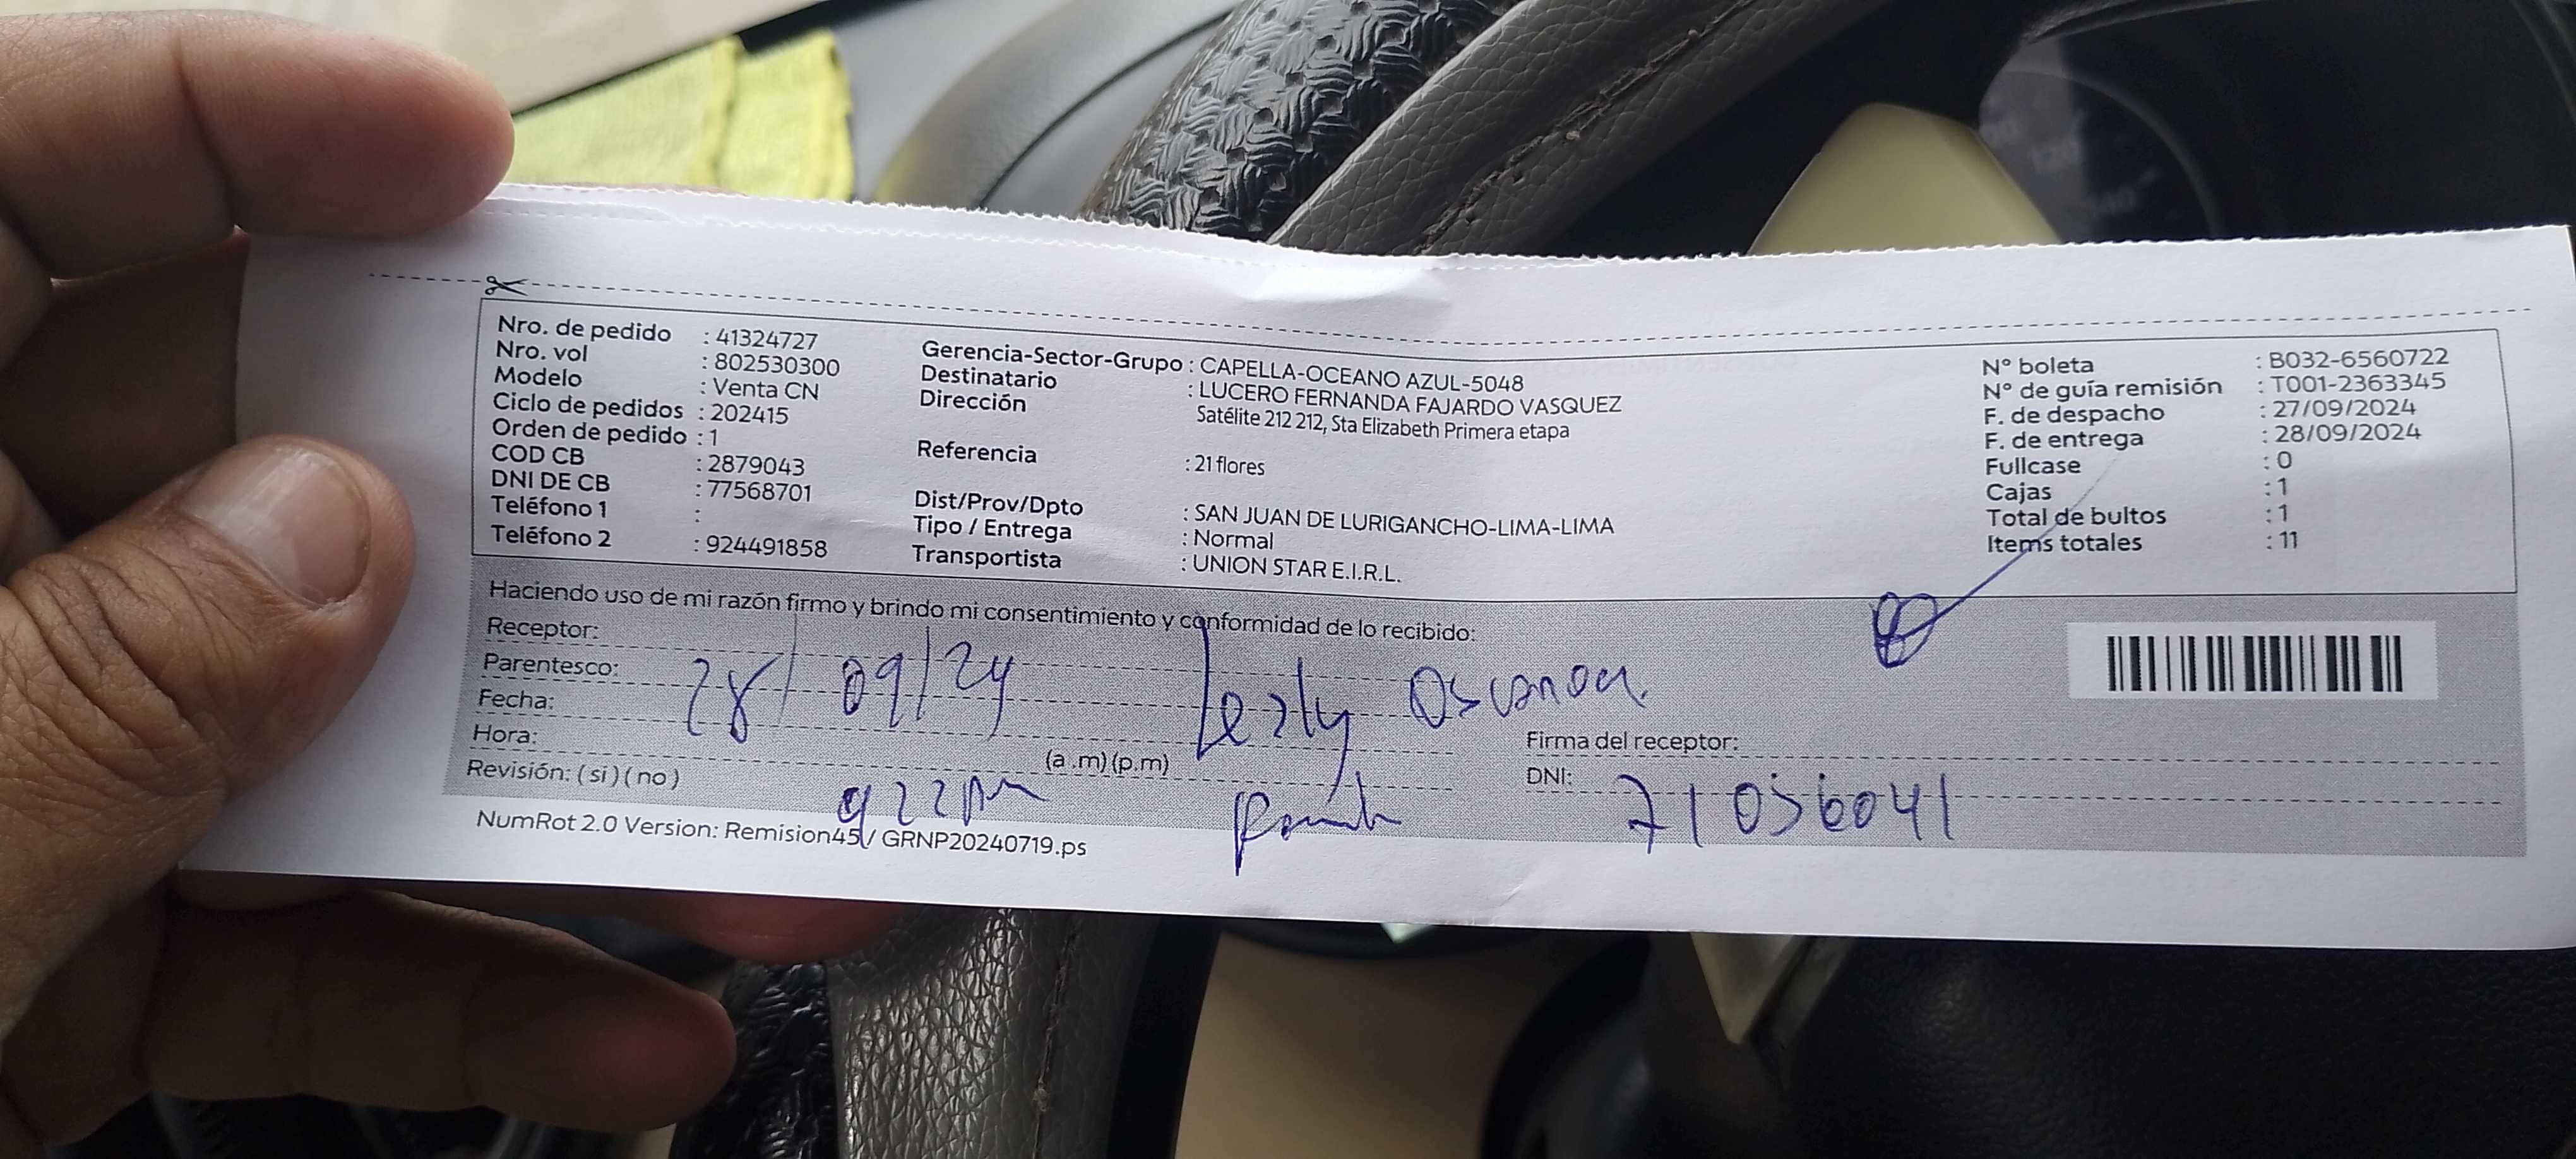 Nro. de pedido : 41324727
Nro. vol : 802530300
Modelo : Venta CN
Ciclo de pedidos : 202415
Orden de pedido : 1
COD CB : 2879043
DNI DE CB : 77568701
Teléfono 1 :
Teléfono 2 : 924491858
Gerencia-Sector-Grupo : CAPELLA-OCEANO AZUL-5048
Destinatario : LUCERO FERNANDA FAJARDO VASQUEZ
Dirección Satélite 212 212, Sta Elizabeth Primera etapa
Referencia : 21 flores
Dist/Prov/Dpto : SAN JUAN DE LURIGANCHO-LIMA-LIMA
Tipo / Entrega : Normal
Transportista : UNION STAR E.I.R.L.
N° boleta : B032-6560722
N° de guía remisión : T001-2363345
F. de despacho : 27/09/2024
F. de entrega : 28/09/2024
Fullcase : 0
Cajas : 1
Total de bultos : 1
Items totales : 11
Haciendo uso de mi razón firmo y brindo mi consentimiento y conformidad de lo recibido:
Receptor:
Parentesco:
Fecha:
28/09/24 Lesly
Hora: (a .m) (p.m)
Revisión: ( si ) ( no )
Firma del receptor:
DNI: 71056041
NumRot 2.0 Version: Remision45 / GRNP20240719.ps
120